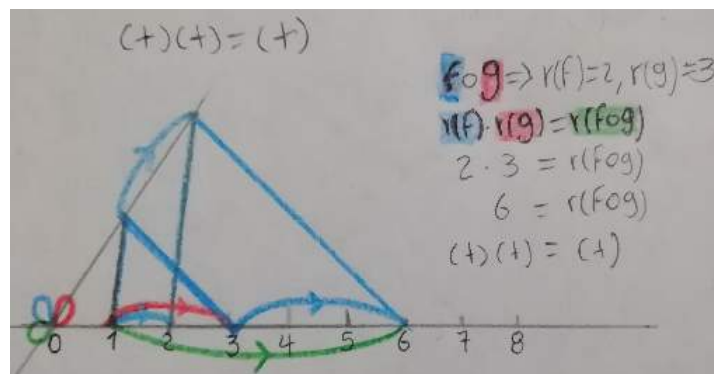 (+)(+)=(+)
fog => r(f)=2, r(g)=3
r(f)·r(g)=r(fog)
2·3 = r(fog)
6 = r(fog)
(+)(+) = (+)
0 1 2 3 4 5 6 7 8